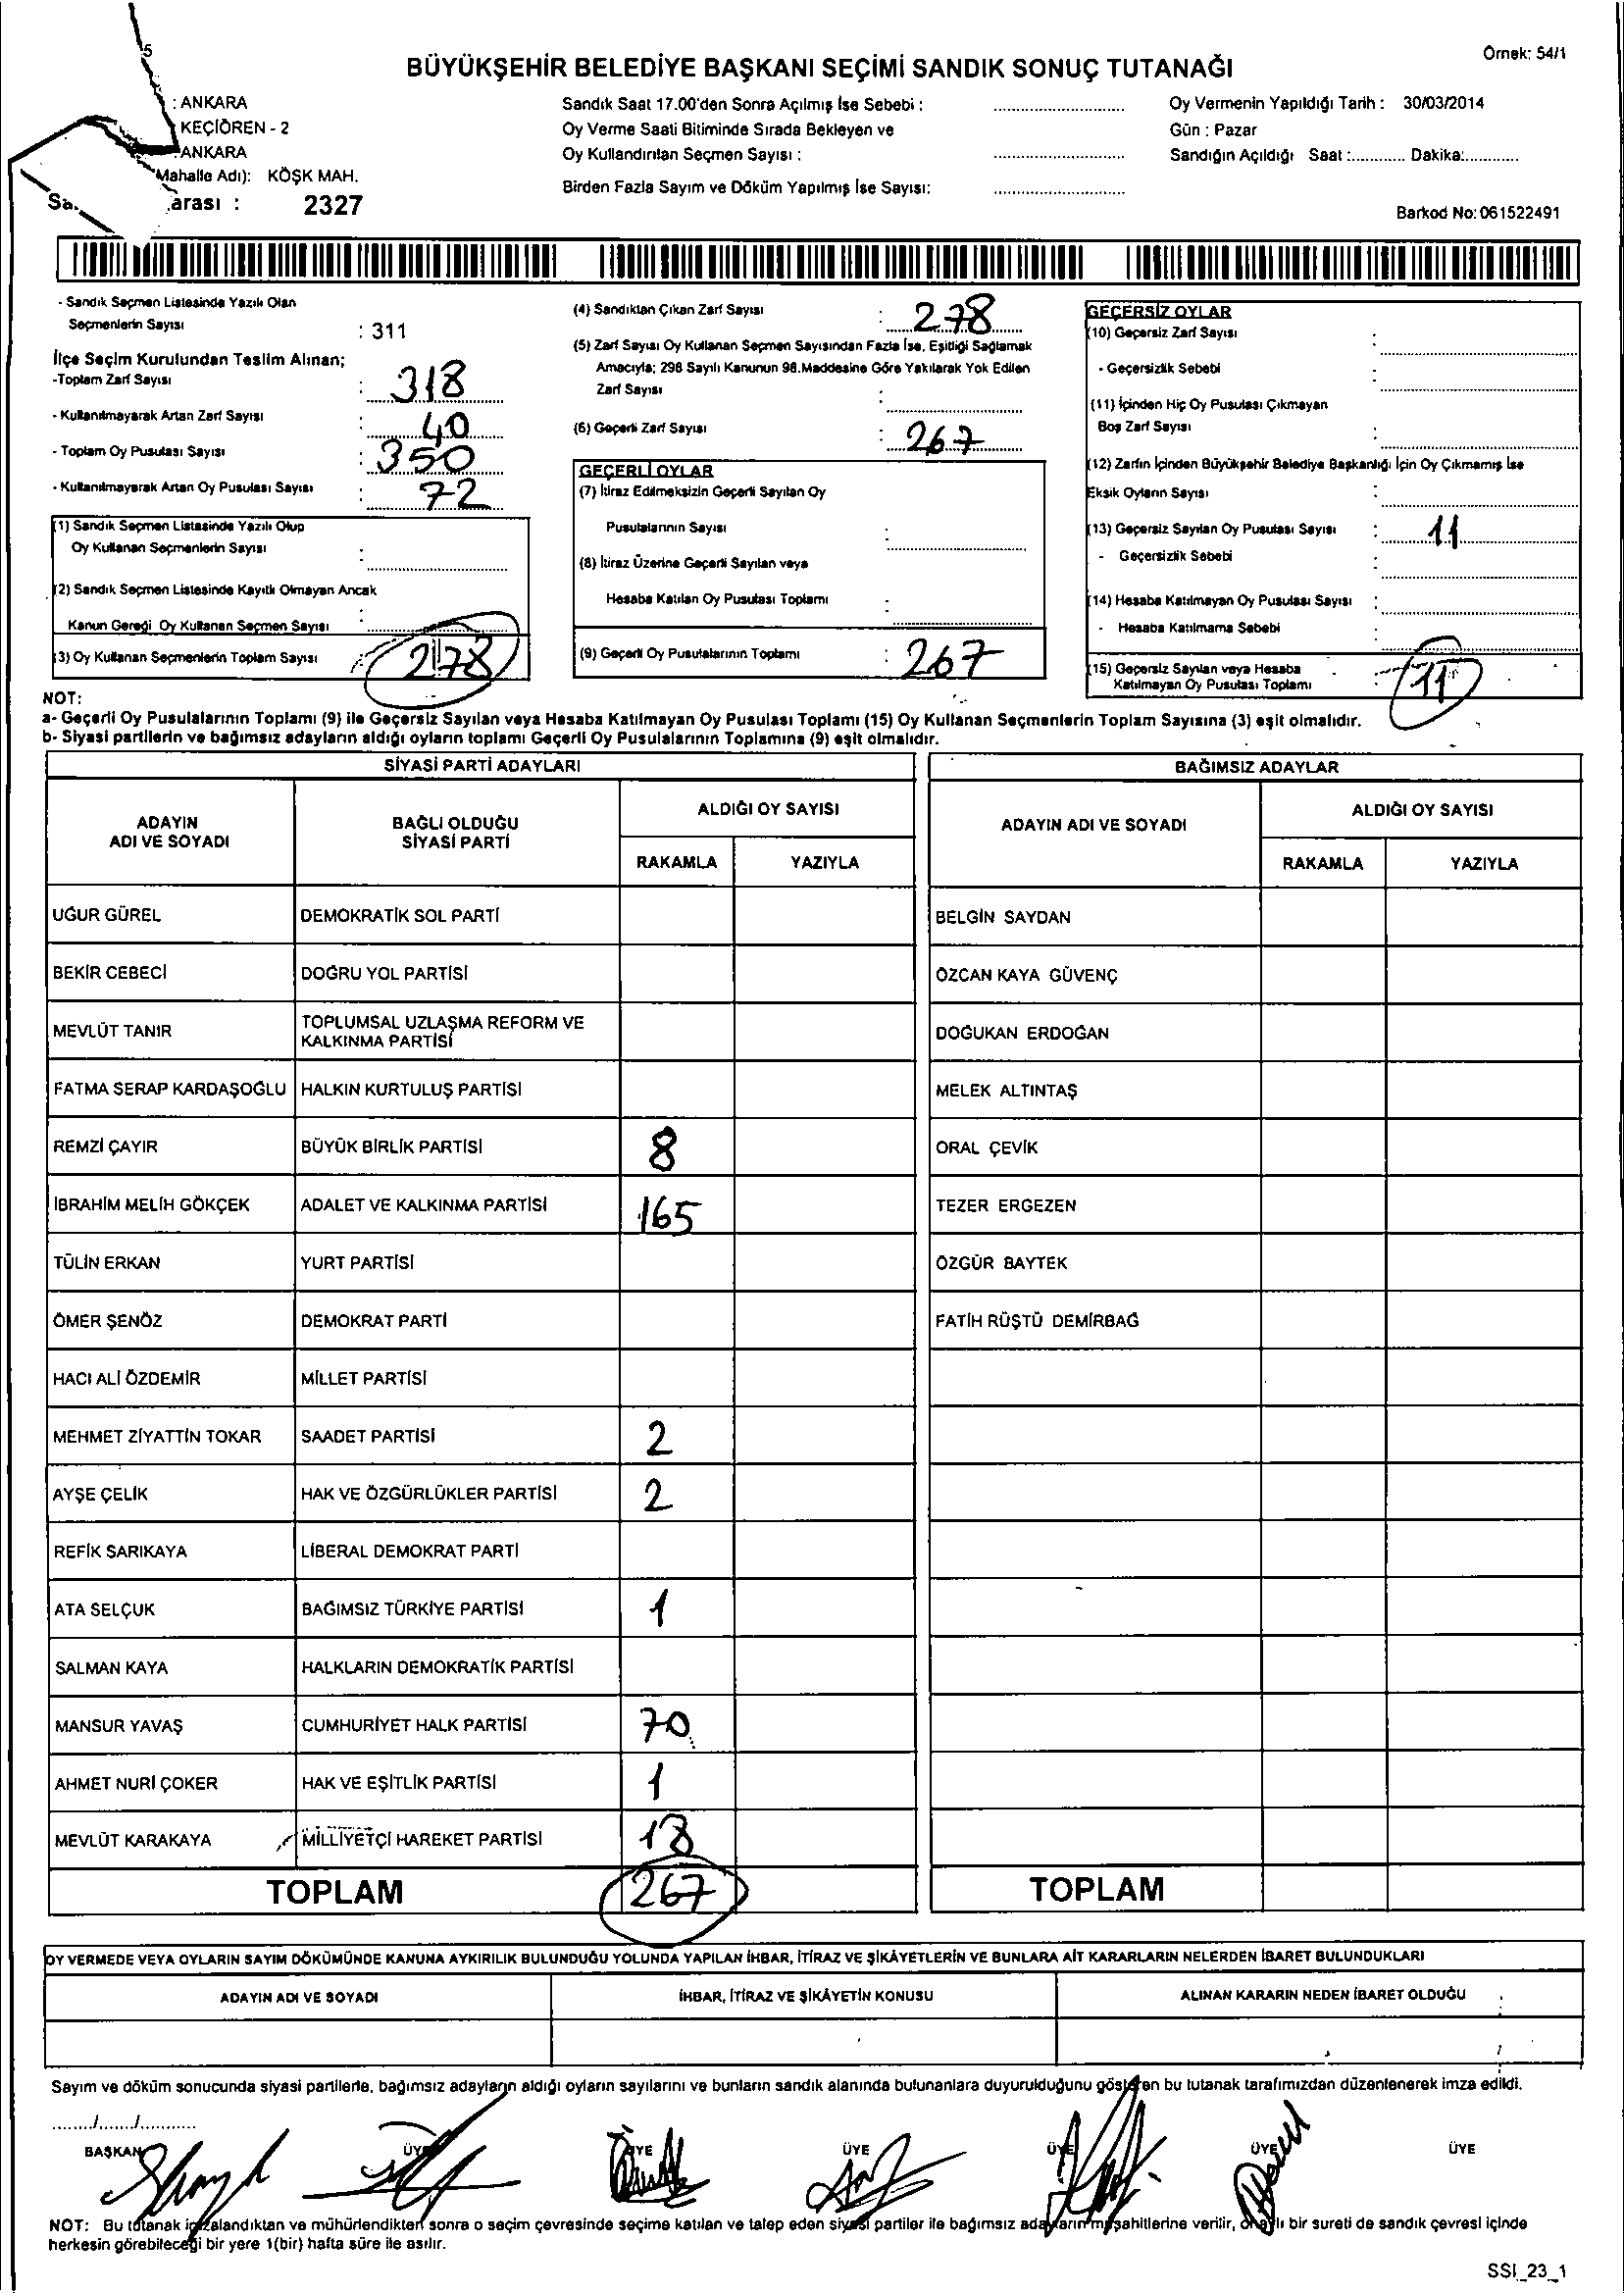 5
Örnek: 54/1
BÜYÜKŞEHİR BELEDİYE BAŞKANI SEÇİMİ SANDIK SONUÇ TUTANAĞI
: ANKARA
KEÇİÖREN - 2
ANKARA
Mahalle Adı): KÖŞK MAH.
arası : 2327
Sandık Saat 17.00'den Sonra Açılmış İse Sebebi :
Oy Verme Saati Bitiminde Sırada Bekleyen ve
Oy Kullandırılan Seçmen Sayısı :
Birden Fazla Sayım ve Döküm Yapılmış İse Sayısı:
Oy Vermenin Yapıldığı Tarih : 30/03/2014
Gün : Pazar
Sandığın Açıldığı Saat :............ Dakika:............
Barkod No: 061522491
- Sandık Seçmen Listesinde Yazılı Olan
Seçmenlerin Sayısı : 311
İlçe Seçim Kurulundan Teslim Alınan;
-Toplam Zarf Sayısı : 318
- Kullanılmayarak Artan Zarf Sayısı : 40
- Toplam Oy Pusulası Sayısı : 350
- Kullanılmayarak Artan Oy Pusulası Sayısı : 72
(1) Sandık Seçmen Listesinde Yazılı Olup
Oy Kullanan Seçmenlerin Sayısı :
(2) Sandık Seçmen Listesinde Kayıtlı Olmayan Ancak
Kanun Gereği Oy Kullanan Seçmen Sayısı :
(3) Oy Kullanan Seçmenlerin Toplam Sayısı : 278
(4) Sandıktan Çıkan Zarf Sayısı : 278
(5) Zarf Sayısı Oy Kullanan Seçmen Sayısından Fazla İse, Eşitliği Sağlamak
Amacıyla; 298 Sayılı Kanunun 98.Maddesine Göre Yakılarak Yok Edilen
Zarf Sayısı :
(6) Geçerli Zarf Sayısı : 267
GEÇERLİ OYLAR
(7) İtiraz Edilmeksizin Geçerli Sayılan Oy
Pusulalarının Sayısı :
(8) İtiraz Üzerine Geçerli Sayılan veya
Hesaba Katılan Oy Pusulası Toplamı :
(9) Geçerli Oy Pusulalarının Toplamı : 267
GEÇERSİZ OYLAR
(10) Geçersiz Zarf Sayısı :
- Geçersizlik Sebebi :
(11) İçinden Hiç Oy Pusulası Çıkmayan
Boş Zarf Sayısı :
(12) Zarfın İçinden Büyükşehir Belediye Başkanlığı İçin Oy Çıkmamış İse
Eksik Oyların Sayısı :
(13) Geçersiz Sayılan Oy Pusulası Sayısı : 11
- Geçersizlik Sebebi :
(14) Hesaba Katılmayan Oy Pusulası Sayısı :
- Hesaba Katılmama Sebebi :
(15) Geçersiz Sayılan veya Hesaba
Katılmayan Oy Pusulası Toplamı : 11
NOT:
a- Geçerli Oy Pusulalarının Toplamı (9) ile Geçersiz Sayılan veya Hesaba Katılmayan Oy Pusulası Toplamı (15) Oy Kullanan Seçmenlerin Toplam Sayısına (3) eşit olmalıdır.
b- Siyasi partilerin ve bağımsız adayların aldığı oyların toplamı Geçerli Oy Pusulalarının Toplamına (9) eşit olmalıdır.
SİYASİ PARTİ ADAYLARI
ADAYIN ADI VE SOYADI
BAĞLI OLDUĞU SİYASİ PARTİ
ALDIĞI OY SAYISI
RAKAMLA YAZIYLA
UĞUR GÜREL DEMOKRATİK SOL PARTİ
BEKİR CEBECİ DOĞRU YOL PARTİSİ
MEVLÜT TANIR TOPLUMSAL UZLAŞMA REFORM VE KALKINMA PARTİSİ
FATMA SERAP KARDAŞOĞLU HALKIN KURTULUŞ PARTİSİ
REMZİ ÇAYIR BÜYÜK BİRLİK PARTİSİ 8
İBRAHİM MELİH GÖKÇEK ADALET VE KALKINMA PARTİSİ 165
TÜLİN ERKAN YURT PARTİSİ
ÖMER ŞENÖZ DEMOKRAT PARTİ
HACI ALİ ÖZDEMİR MİLLET PARTİSİ
MEHMET ZİYATTİN TOKAR SAADET PARTİSİ 2
AYŞE ÇELİK HAK VE ÖZGÜRLÜKLER PARTİSİ 2
REFİK SARIKAYA LİBERAL DEMOKRAT PARTİ
ATA SELÇUK BAĞIMSIZ TÜRKİYE PARTİSİ 1
SALMAN KAYA HALKLARIN DEMOKRATİK PARTİSİ
MANSUR YAVAŞ CUMHURİYET HALK PARTİSİ 70
AHMET NURİ ÇOKER HAK VE EŞİTLİK PARTİSİ 1
MEVLÜT KARAKAYA MİLLİYETÇİ HAREKET PARTİSİ 18
TOPLAM 267
BAĞIMSIZ ADAYLAR
ADAYIN ADI VE SOYADI
ALDIĞI OY SAYISI
RAKAMLA YAZIYLA
BELGİN SAYDAN
ÖZCAN KAYA GÜVENÇ
DOĞUKAN ERDOĞAN
MELEK ALTINTAŞ
ORAL ÇEVİK
TEZER ERGEZEN
ÖZGÜR BAYTEK
FATİH RÜŞTÜ DEMİRBAĞ
TOPLAM
OY VERMEDE VEYA OYLARIN SAYIM DÖKÜMÜNDE KANUNA AYKIRILIK BULUNDUĞU YOLUNDA YAPILAN İHBAR, İTİRAZ VE ŞİKÂYETLERİN VE BUNLARA AİT KARARLARIN NELERDEN İBARET BULUNDUKLARI
ADAYIN ADI VE SOYADI İHBAR, İTİRAZ VE ŞİKÂYETİN KONUSU ALINAN KARARIN NEDEN İBARET OLDUĞU
Sayım ve döküm sonucunda siyasi partilerle, bağımsız adayların aldığı oyların sayılarını ve bunların sandık alanında bulunanlara duyurulduğunu gösteren bu tutanak tarafımızdan düzenlenerek imza edildi.
......../......../............
BAŞKAN ÜYE ÜYE ÜYE ÜYE ÜYE ÜYE
NOT: Bu tutanak imzalandıktan ve mühürlendikten sonra o seçim çevresinde seçime katılan ve talep eden siyasi partiler ile bağımsız adayların müşahitlerine verilir, onaylı bir sureti de sandık çevresi içinde
herkesin görebileceği bir yere 1(bir) hafta süre ile asılır.
SSI_23_1